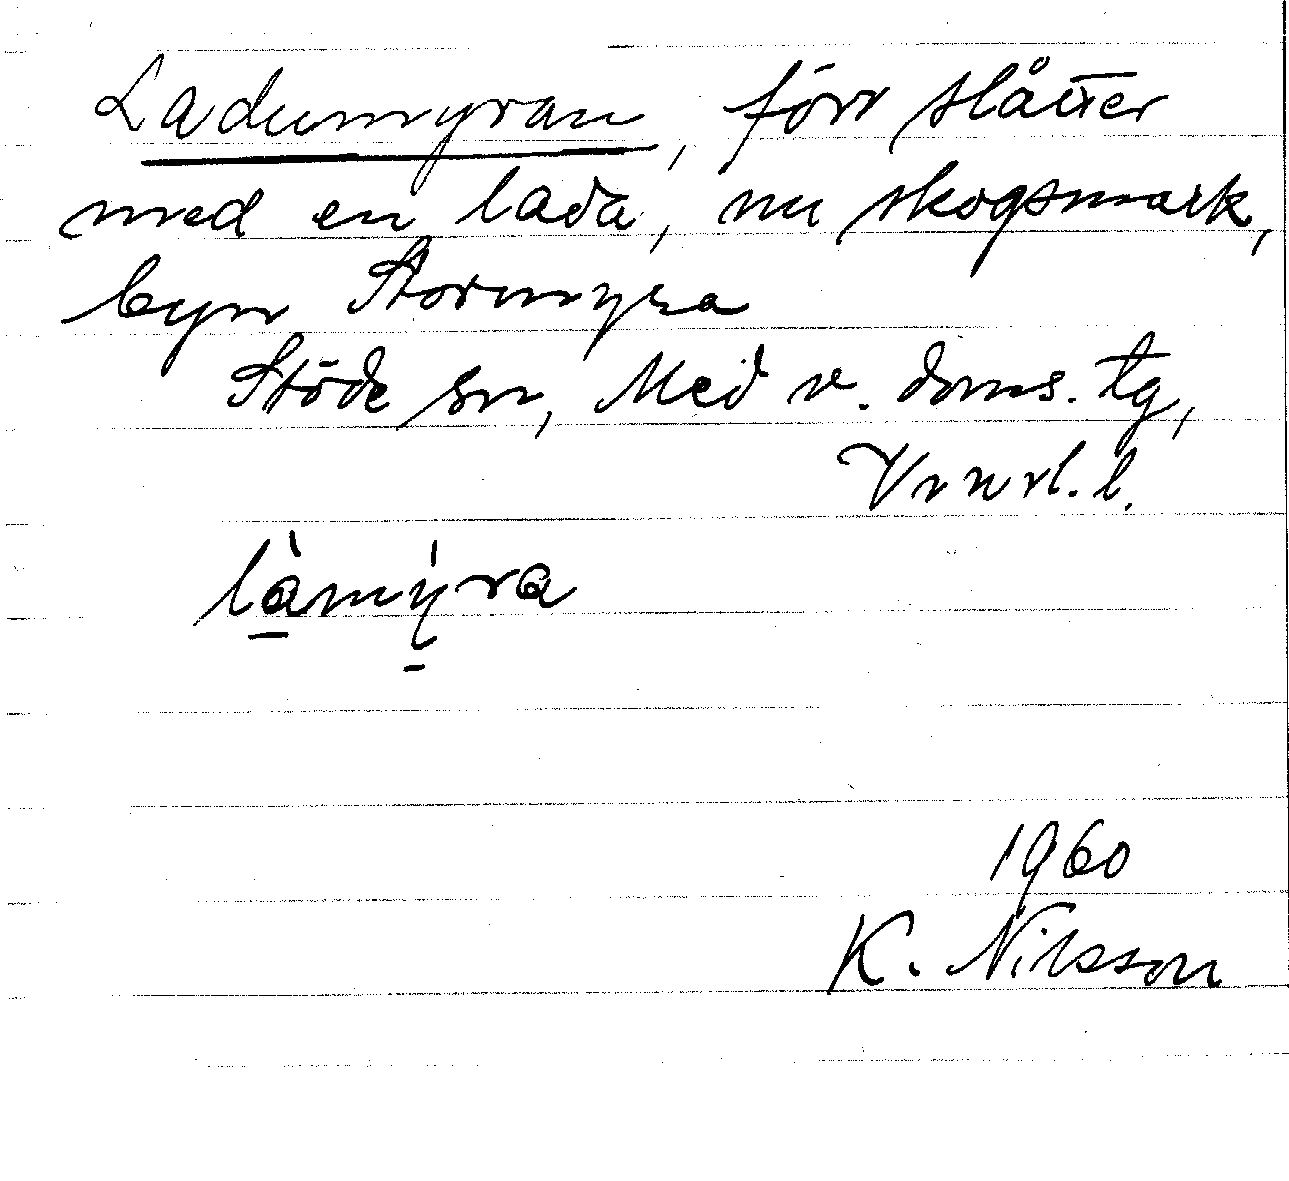 Ladumyran, förr slåtter
med en lada, nu skogsmark,
byn Stormyra
Stöde sn, Med v. doms. tg,
Vrnrl. l.
làmýra
1960
K. Nilsson